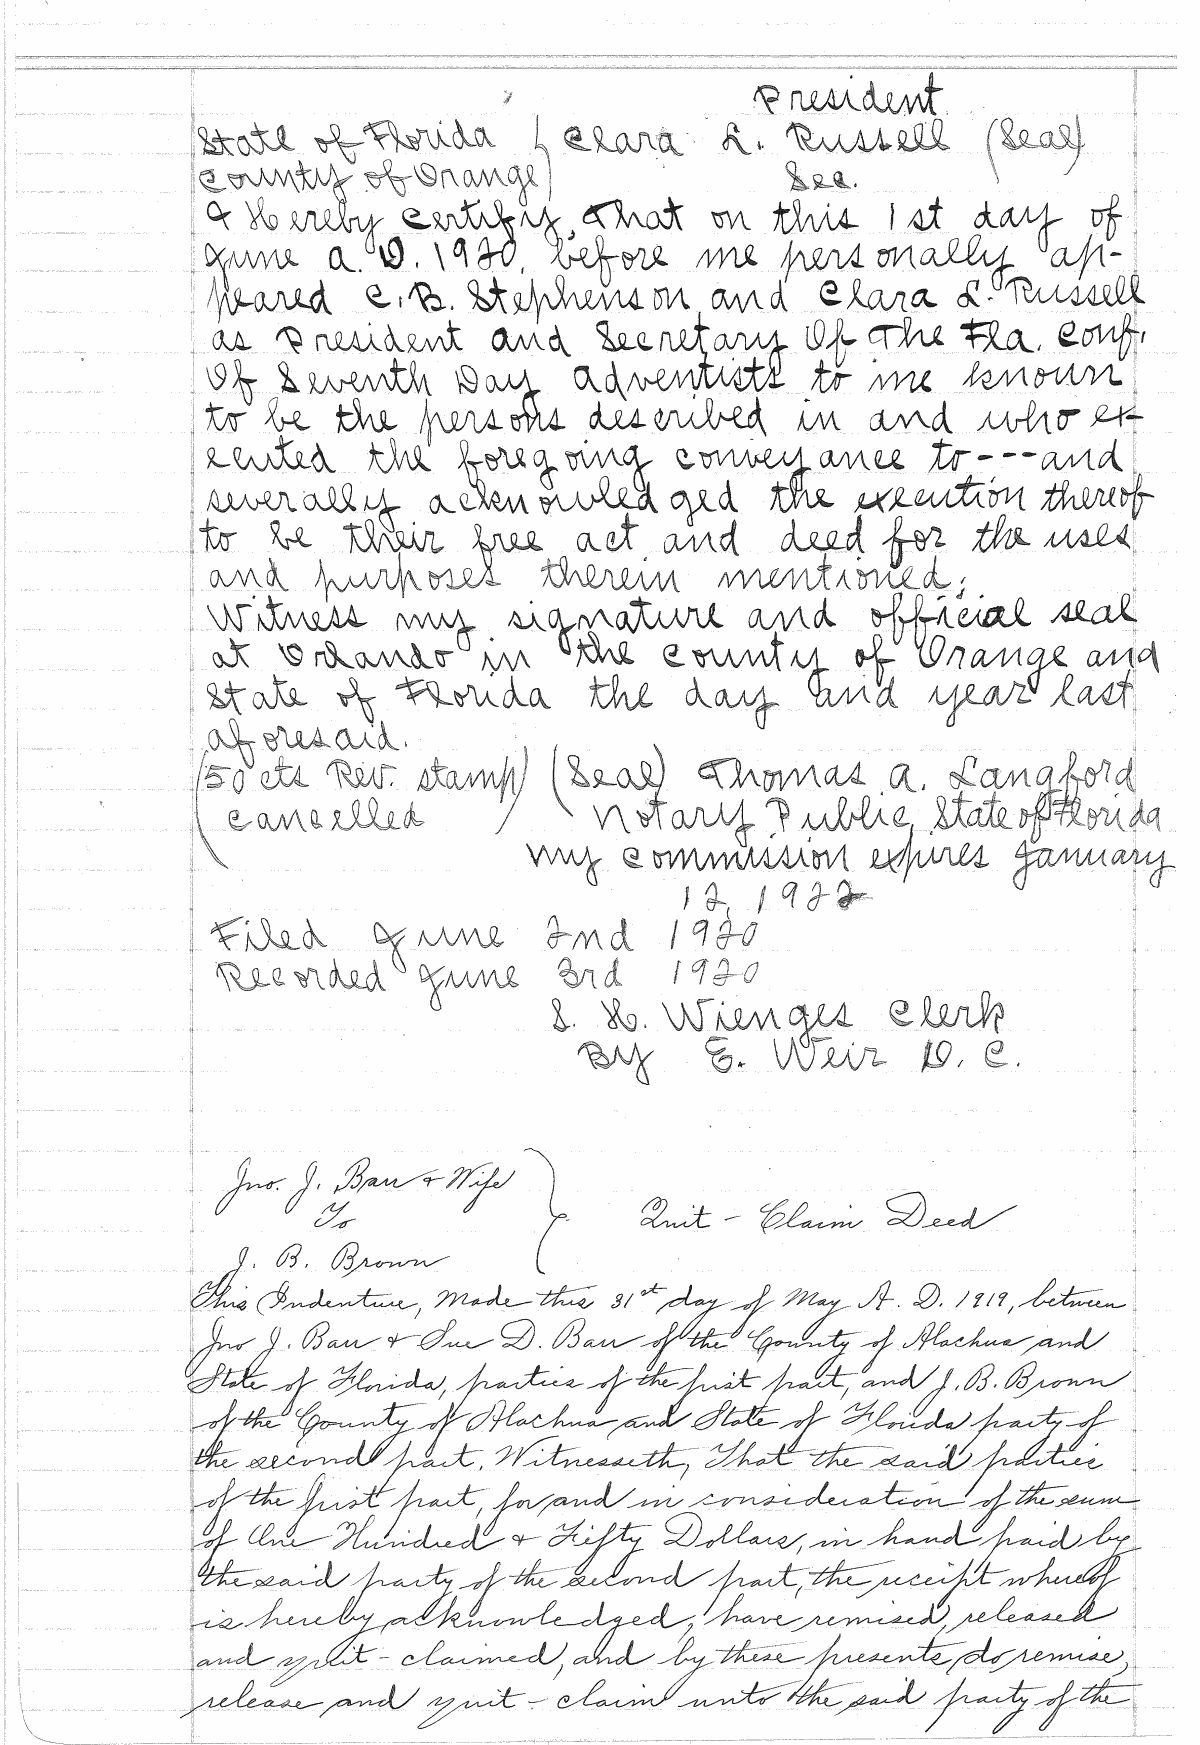 President
State of Florida } Clara L. Russell (Seal)
County of Orange} Sec.
I Hereby certify, That on this 1st day of
June A. D. 1920, before me personally ap-
peared C. B. Stephenson and Clara L. Russell
as President and Secretary Of The Fla. Conf.
Of Seventh Day Adventists to me known
to be the persons described in and who ex-
ecuted the foregoing conveyance to --- and
severally acknowledged the execution thereof
to be their free act and deed for the uses
and purposes therein mentioned;
Witness my signature and official seal
at Orlando in the County of Orange and
State of Florida the day and year last
aforesaid.
(50 cts Rev. stamp) (Seal) Thomas A. Langford
cancelled Notary Public, State of Florida
My commission expires January
12, 1922
Filed June 2nd 1920
Recorded June 3rd 1920
S. H. Wienges Clerk
By E. Weir D. C.
Jno. J. Barr & Wife
To
J. B. Brown
Quit - Claim Deed
This Indenture, Made this 31st day of May A. D. 1919, between
Jno J. Barr & Sue D. Barr of the County of Alachua and
State of Florida, parties of the first part, and J. B. Brown
of the County of Alachua and State of Florida party of
the second part, Witnesseth, That the said parties
of the first part, for and in consideration of the sum
of One Hundred & Fifty Dollars, in hand paid by
the said party of the second part, the receipt whereof
is hereby acknowledged, have remised, released
and quit - claimed, and by these presents, do remise,
release and quit - claim unto the said party of the